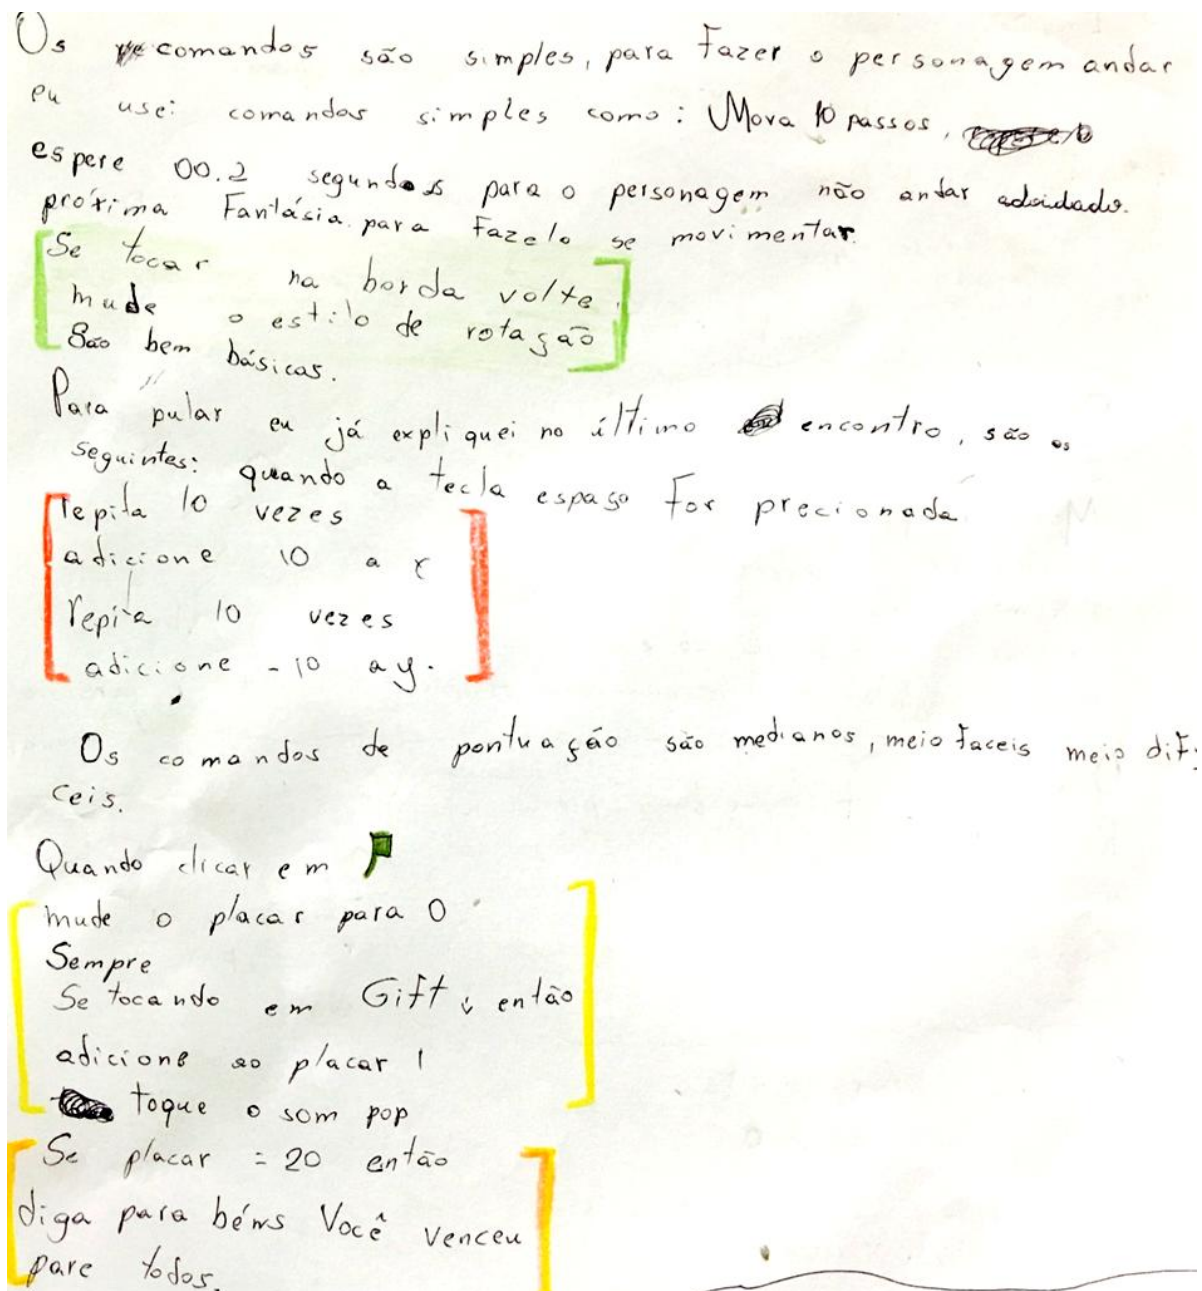 Os comandos são simples, para fazer o personagem andar
eu usei comandos simples como: Mova 10 passos,
espere 00.2 segundos para o personagem não andar adoidado.
próxima Fantásia para fazelo se movimentar.
Se tocar na borda volte.
mude o estilo de rotação
São bem básicas.
Para pular eu já expliquei no último encontro, são os
seguintes: quando a tecla espaço for precionada
repita 10 vezes
adicione 10 a x
repita 10 vezes
adicione -10 a y.
Os comandos de pontuação são medianos, meio faceis meio difi
ceis.
Quando clicar em
mude o placar para 0
Sempre
Se tocando em Gift então
adicione ao placar 1
toque o som pop
Se placar = 20 então
diga para béns Você venceu
pare todos.